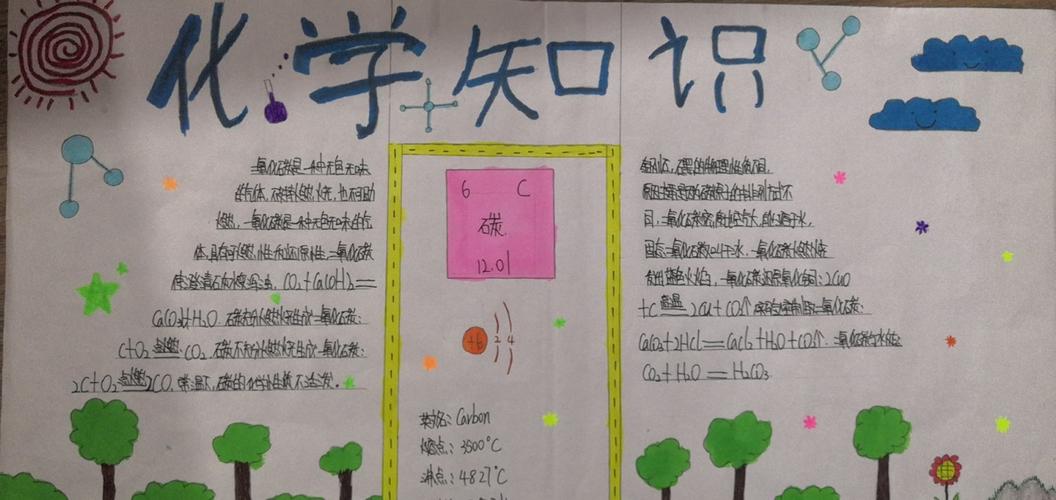 化学知识
一氧化碳是一种无色无味
的气体,碳持燃烧,也不可助
燃,一氧化碳是一种无色无味的气
体,具有可燃性和还原性,二氧化碳
使澄清石灰水变浑浊,CO₂+Ca(OH)₂==
CaCO₃+H₂O.碳充分燃烧生成二氧化碳:
C+O₂ 点燃 CO₂ 碳不充分燃烧生成一氧化碳:
2C+O₂ 点燃 2CO.常温下,碳的化学性质不活泼.
6 C
碳
12.01
+6 2 4
英文名:Carbon
熔点:3500°C
沸点:4827°C
金刚石,石墨的物理性质不同,
原因是碳原子的排列方式不
同,一氧化碳密度比空气小,难溶于水,
二氧化碳可溶于水,一氧化碳燃烧
蓝色火焰,碳还原氧化铜:2CuO
+C 高温 2Cu+CO₂↑ 实验室制取二氧化碳:
CaCO₃+2HCl==CaCl₂+H₂O+CO₂↑.二氧化碳与水反应:
CO₂+H₂O==H₂CO₃